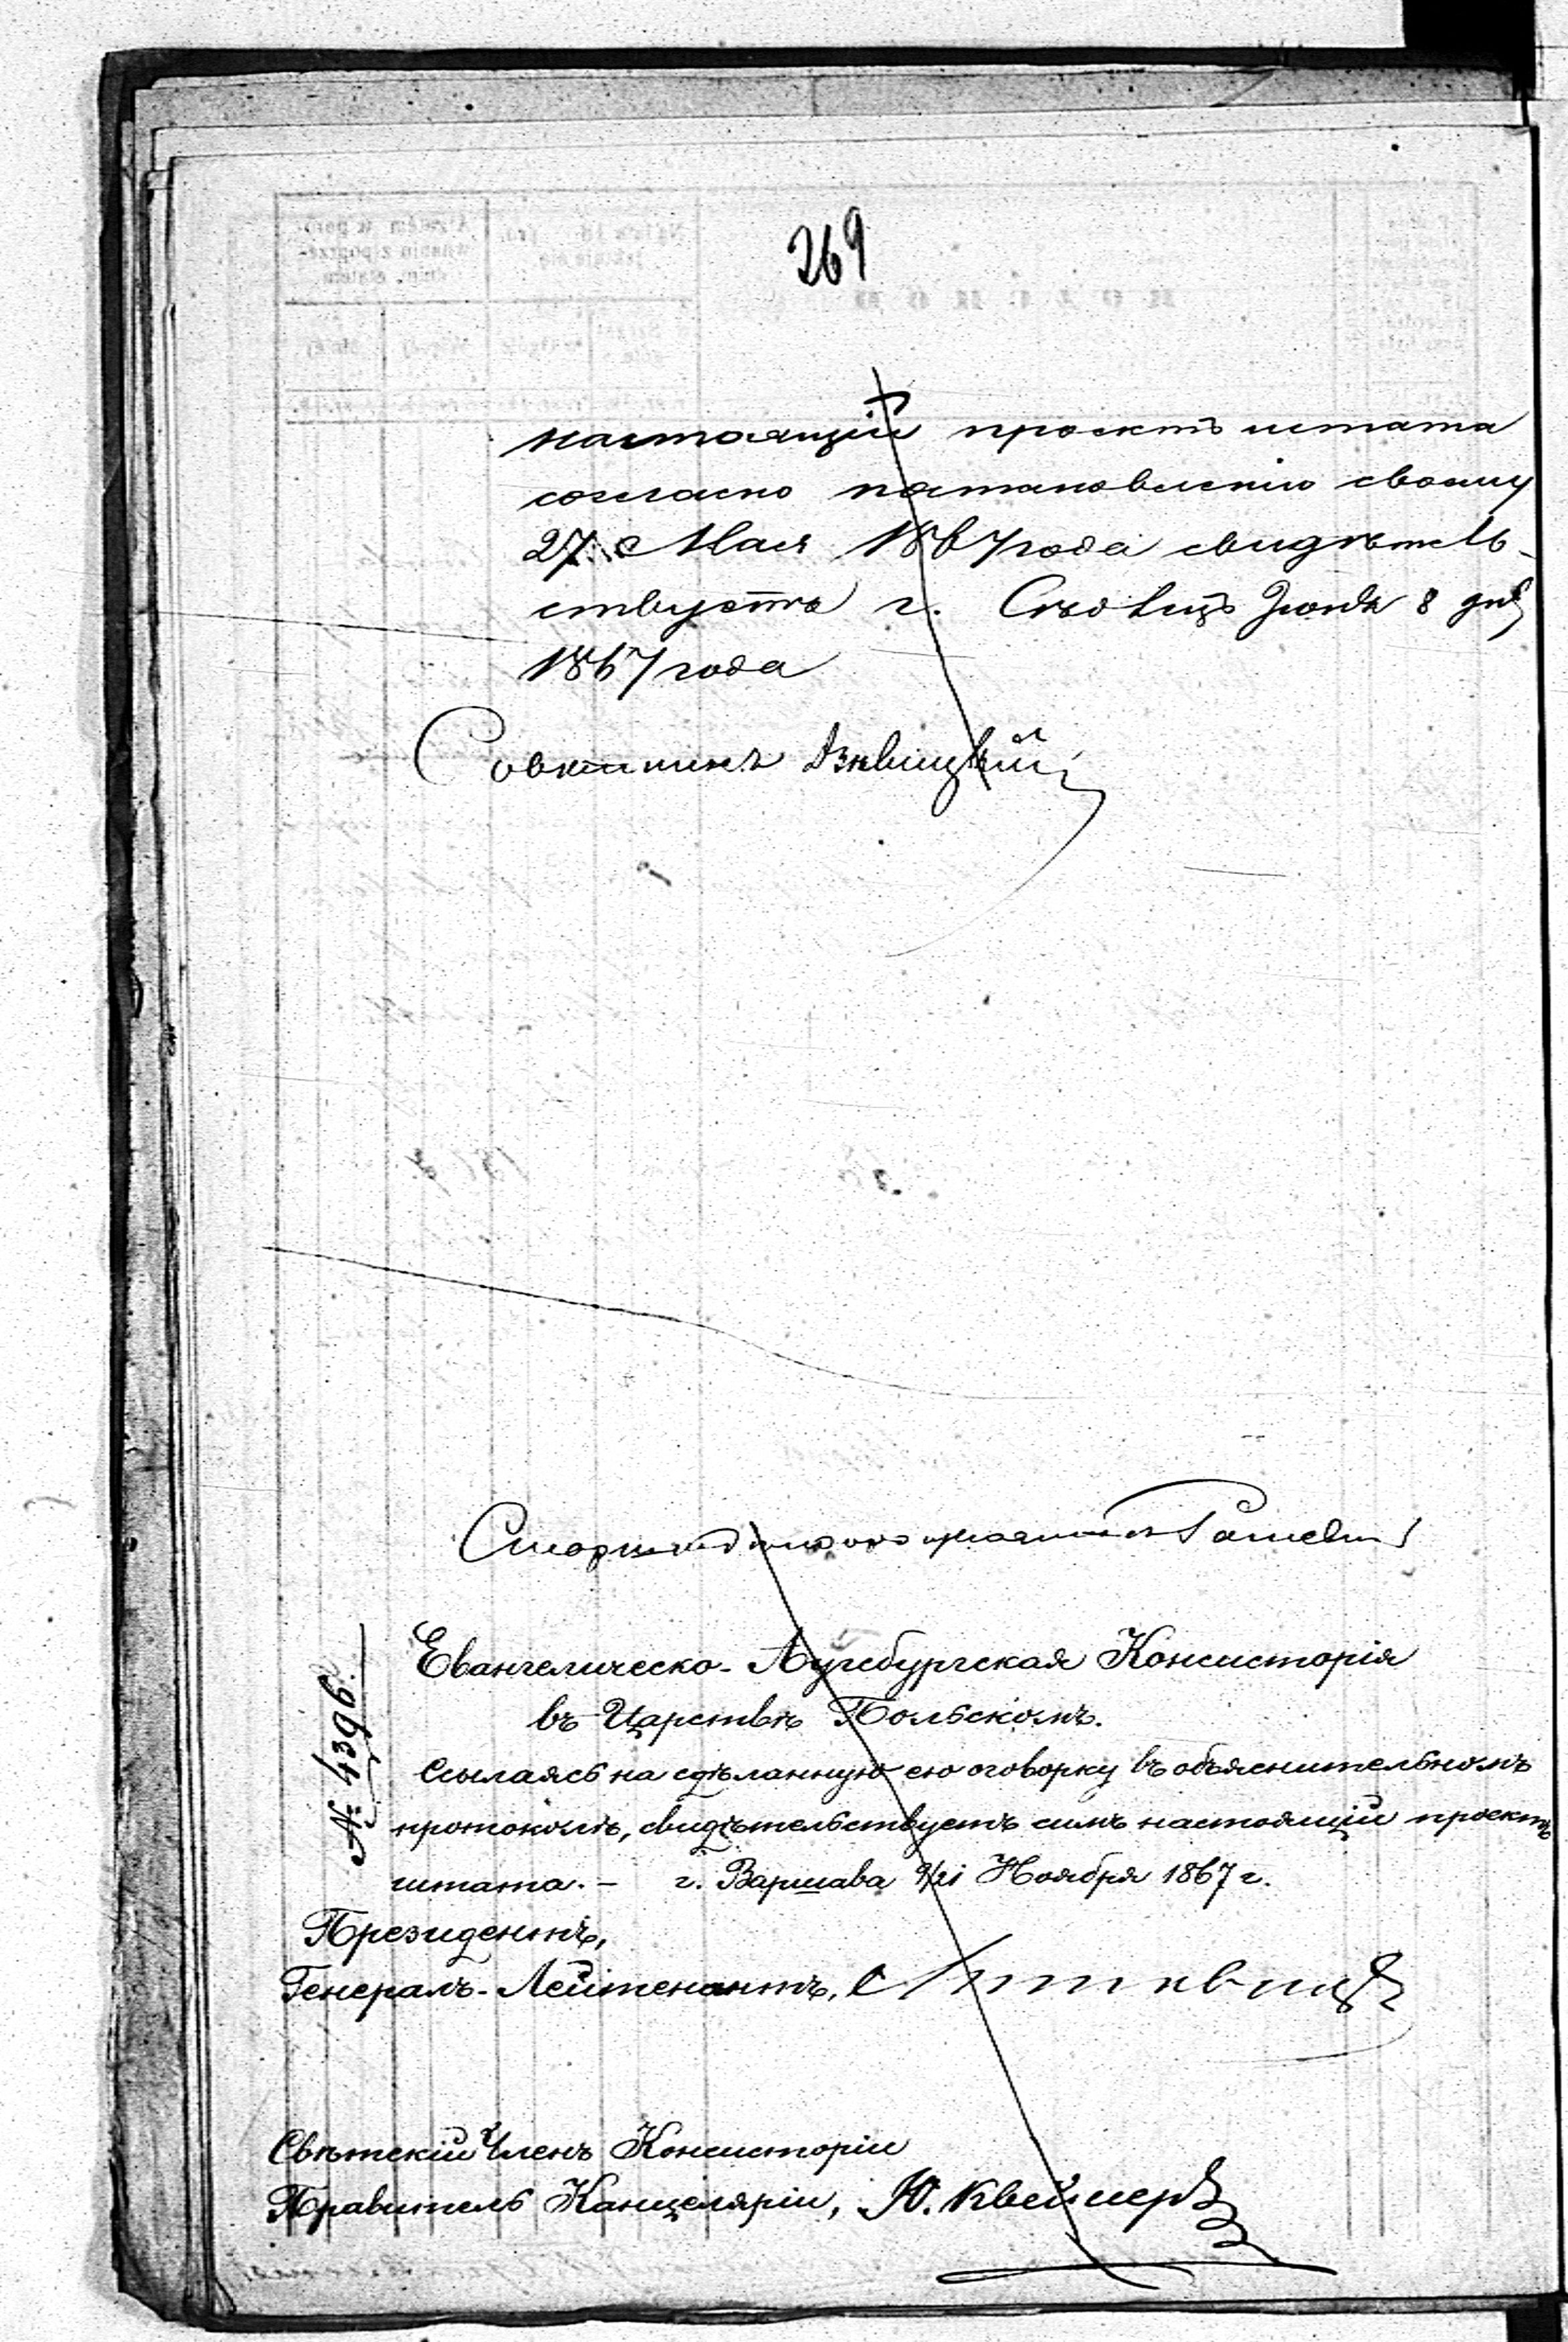 269
настоящій проектъ штата
согласно постановленію своему
27 Мая 1867 года свидѣтель-
ствуетъ г. Сѣдлецъ Іюня 8 дня
1867 года
Совѣтникъ
Евангелическо-Аугсбургская Консисторія
въ Царствѣ Польскомъ.
№ 4396.
Ссылаясь на сдѣланную ею оговорку въ объяснительномъ
протоколѣ, свидѣтельствуетъ симъ настоящій проектъ
штата. – г. Варшава 9/21 Ноября 1867 г.
Президентъ,
Генералъ-Лейтенантъ,
Свѣтскій Членъ Консисторіи
Правитель Канцеляріи, Ю.